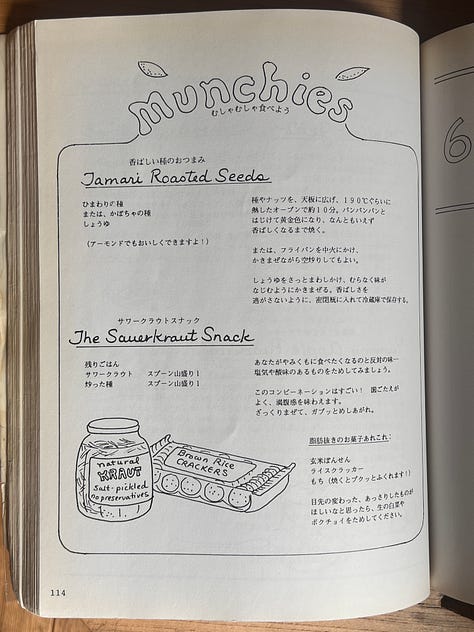 munchies
むしゃむしゃ食べよう
香ばしい種のおつまみ
Tamari Roasted Seeds
ひまわりの種
または、かぼちゃの種
しょうゆ
(アーモンドでもおいしくできますよ!)
種やナッツを、天板に広げ、190℃ぐらいに
熱したオーブンで約10分。パンパンパンと
はじけて黄金色になり、なんともいえず
香ばしくなるまで焼く。
または、フライパンを中火にかけ、
かきまぜながら空炒りしてもよい。
しょうゆをさっとまわしかけ、むらなく味が
なじむようにかきまぜる。香ばしさを
逃がさないように、密閉瓶に入れて冷蔵庫で保存する。
サワークラウトスナック
The Sauerkraut Snack
残りごはん
サワークラウト スプーン山盛り1
炒った種 スプーン山盛り1
あなたがやみくもに食べたくなるのと反対の味―
塩気や酸味のあるものをためしてみましょう。
このコンビーネーションはすごい! 歯ごたえが
よく、満腹感を味わえます。
ざっくりまぜて、ガブッとめしあがれ。
脂肪抜きのお菓子あれこれ:
玄米ぽんせん
ライスクラッカー
もち(焼くとプクッとふくれます!!)
目先の変わった、あっさりしたものが
ほしいなと思ったら、生の白菜や
ボクチョイをためしてください。
natural
KRAUT
Salt-pickled
no preservatives
Brown Rice
CRACKERS
114
6